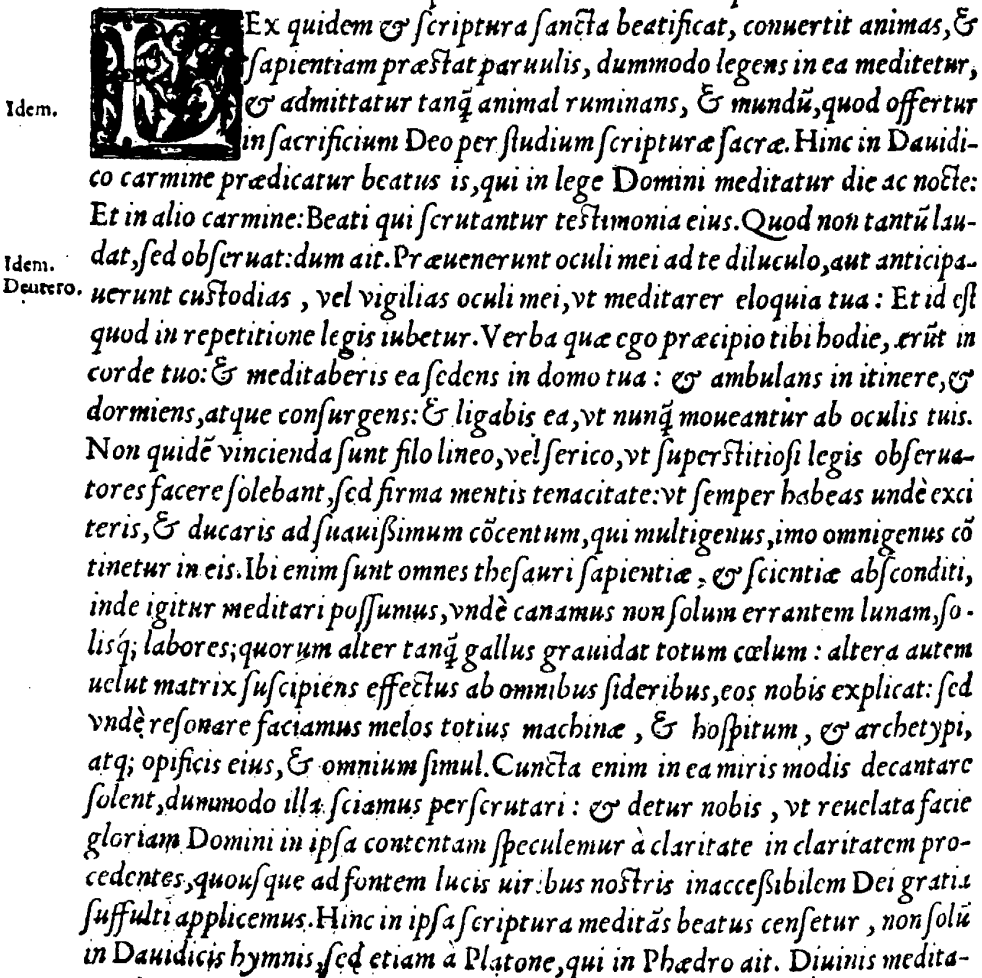 LEx quidem & ſcriptura ſancta beatificat, conuertit animas, &
ſapientiam præſtat paruulis, dummodo legens in ea meditetur,
Idem.
& admittatur tanq̃ animal ruminans, & mundũ, quod offertur
in ſacrificium Deo per ſtudium ſcripturæ ſacræ. Hinc in Dauidi-
co carmine prædicatur beatus is, qui in lege Domini meditatur die ac nocte:
Et in alio carmine: Beati qui ſcrutantur teſtimonia eius. Quod non tantũ lau-
Idem.
dat, ſed obſeruat: dum ait. Præuenerunt oculi mei ad te diluculo, aut anticipa-
Deutero.
uerunt cuſtodias, vel vigilias oculi mei, vt meditarer eloquia tua: Et id eſt
quod in repetitione legis iubetur. Verba quæ ego præcipio tibi hodie, erũt in
corde tuo: & meditaberis ea ſedens in domo tua: & ambulans in itinere, &
dormiens, atque conſurgens: & ligabis ea, vt nunq̃ moueantur ab oculis tuis.
Non quidẽ vincienda ſunt filo lineo, vel ſerico, vt ſuperſtitioſi legis obſerua-
tores facere ſolebant, ſed firma mentis tenacitate: vt ſemper habeas undè exci
teris, & ducaris ad ſuauißimum cõcentum, qui multigenus, imo omnigenus cõ
tinetur in eis. Ibi enim ſunt omnes theſauri ſapientiæ, & ſcientiæ abſconditi,
inde igitur meditari poſſumus, vndè canamus non ſolum errantem lunam, ſo-
liſq́; labores; quorum alter tanq̃ gallus grauidat totum cœlum: altera autem
uelut matrix ſuſcipiens effectus ab omnibus ſideribus, eos nobis explicat: ſed
vndè reſonare faciamus melos totius machinæ, & hoſpitum, & archetypi,
atq; opificis eius, & omnium ſimul. Cuncta enim in ea miris modis decantare
ſolent, dummodo illa ſciamus perſcrutari: & detur nobis, vt reuelata facie
gloriam Domini in ipſa contentam ſpeculemur à claritate in claritatem pro-
cedentes, quouſque ad fontem lucis uiribus noſtris inacceßibilem Dei gratia
ſuffulti applicemus. Hinc in ipſa ſcriptura meditãs beatus cenſetur, non ſolũ
in Dauidicis hymnis, ſed etiam à Platone, qui in Phædro ait. Diuinis medita-